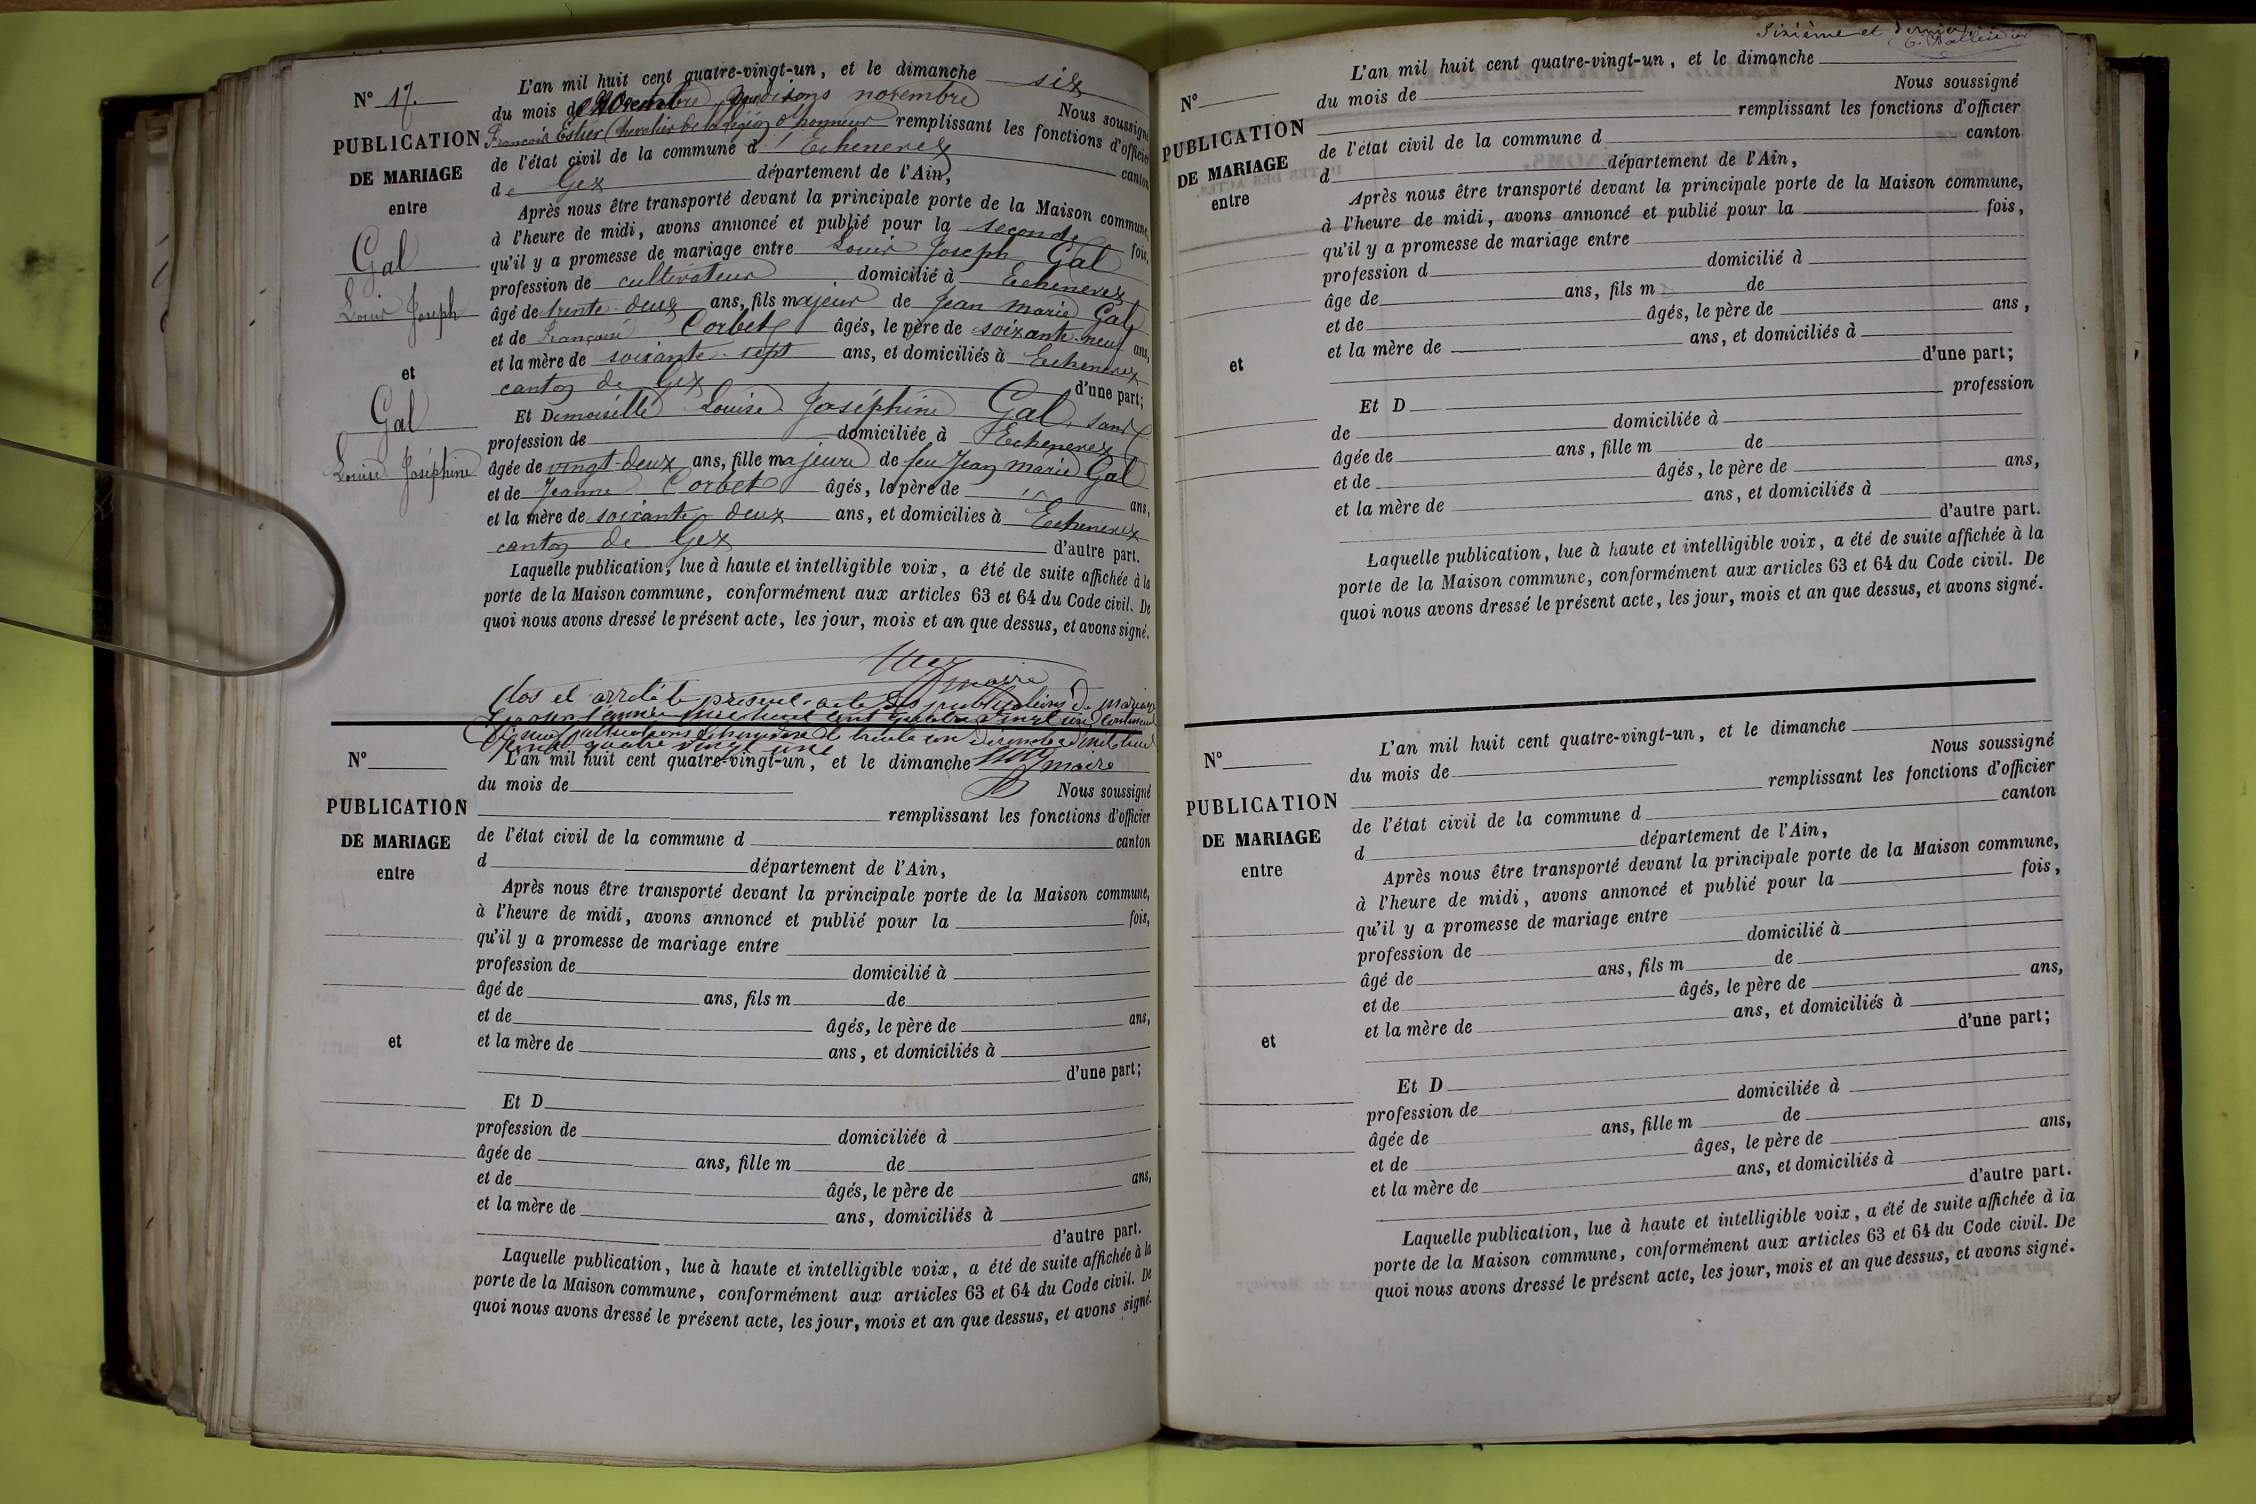 N° 17.
PUBLICATION
DE MARIAGE
entre
Gal
Louis Joseph
et
Gal
Louise Joséphine
L'an mil huit cent quatre-vingt-un, et le dimanche six
du mois de novembre Nous soussigné
François Chevalier de la Légion d'honneur remplissant les fonctions d'officier
de l'état civil de la commune d'Echenevex canton
de Gex département de l'Ain,
Après nous être transporté devant la principale porte de la Maison commune,
à l'heure de midi, avons annoncé et publié pour la seconde fois,
qu'il y a promesse de mariage entre Louis Joseph Gal
profession de cultivateur domicilié à Echenevex
âgé de trente-deux ans, fils majeur de Jean Marie Gal
et de Françoise Corbet âgés, le père de soixante-neuf ans,
et la mère de soixante-sept ans, et domiciliés à Echenevex
canton de Gex d'une part;
Et Demoiselle Louise Joséphine Gal, sans
profession de domiciliée à Echenevex
âgée de vingt-deux ans, fille majeure de feu Jean Marie Gal
et de Jeanne Corbet âgés, le père de " ans,
et la mère de soixante deux ans, et domicilies à Echenevex
canton de Gex d'autre part.
Laquelle publication, lue à haute et intelligible voix, a été de suite affichée à la
porte de la Maison commune, conformément aux articles 63 et 64 du Code civil. De
quoi nous avons dressé le présent acte, les jour, mois et an que dessus, et avons signé.
maire
Clos et arrêté le présent acte des publications de mariage
pour l'année mil huit cent quatre vingt un contenant
publications le trente un décembre mil huit
cent quatre vingt un
maire
N°
PUBLICATION
DE MARIAGE
entre
et
L'an mil huit cent quatre-vingt-un, et le dimanche
du mois de Nous soussigné
remplissant les fonctions d'officier
de l'état civil de la commune d canton
d département de l'Ain,
Après nous être transporté devant la principale porte de la Maison commune,
à l'heure de midi, avons annoncé et publié pour la fois,
qu'il y a promesse de mariage entre
profession de domicilié à
âgé de ans, fils m de
et de âgés, le père de ans,
et la mère de ans, et domiciliés à
d'une part;
Et D
profession de domiciliée à
âgée de ans, fille m de
et de âgés, le père de ans,
et la mère de ans, domiciliés à
d'autre part.
Laquelle publication, lue à haute et intelligible voix, a été de suite affichée à la
porte de la Maison commune, conformément aux articles 63 et 64 du Code civil. De
quoi nous avons dressé le présent acte, les jour, mois et an que dessus, et avons signé.
Sixième et dernier
N°
PUBLICATION
DE MARIAGE
entre
et
L'an mil huit cent quatre-vingt-un, et le dimanche
du mois de Nous soussigné
remplissant les fonctions d'officier
de l'état civil de la commune d canton
d département de l'Ain,
Après nous être transporté devant la principale porte de la Maison commune,
à l'heure de midi, avons annoncé et publié pour la fois,
qu'il y a promesse de mariage entre
profession d domicilié à
âge de ans, fils m de
et de âgés, le père de ans,
et la mère de ans, et domiciliés à
d'une part;
Et D profession
de domiciliée à
âgée de ans, fille m de
et de âgés, le père de ans,
et la mère de ans, et domiciliés à
d'autre part.
Laquelle publication, lue à haute et intelligible voix, a été de suite affichée à la
porte de la Maison commune, conformément aux articles 63 et 64 du Code civil. De
quoi nous avons dressé le présent acte, les jour, mois et an que dessus, et avons signé.
N°
PUBLICATION
DE MARIAGE
entre
et
L'an mil huit cent quatre-vingt-un, et le dimanche
du mois de Nous soussigné
remplissant les fonctions d'officier
de l'état civil de la commune d canton
d département de l'Ain,
Après nous être transporté devant la principale porte de la Maison commune,
à l'heure de midi, avons annoncé et publié pour la fois,
qu'il y a promesse de mariage entre
profession de domicilié à
âgé de ans, fils m de
et de âgés, le père de ans,
et la mère de ans, et domiciliés à
d'une part;
Et D
profession de domiciliée à
âgée de ans, fille m de
et de âges, le père de ans,
et la mère de ans, et domiciliés à
d'autre part.
Laquelle publication, lue à haute et intelligible voix, a été de suite affichée à la
porte de la Maison commune, conformément aux articles 63 et 64 du Code civil. De
quoi nous avons dressé le présent acte, les jour, mois et an que dessus, et avons signé.